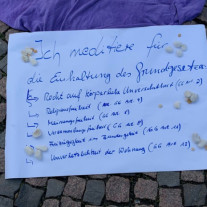 Ich meditiere für
die Einhaltung des Grundgesetzes
→ Recht auf körperliche Unversehrtheit (GG 2)
→ Religionsfreiheit
→ Meinungsfreiheit (GG 5)
→ Versammlungsfreiheit (GG 8)
Freizügigkeit im Bundesgebiet (GG 11)
→ Unverletzlichkeit der Wohnung (GG 13)